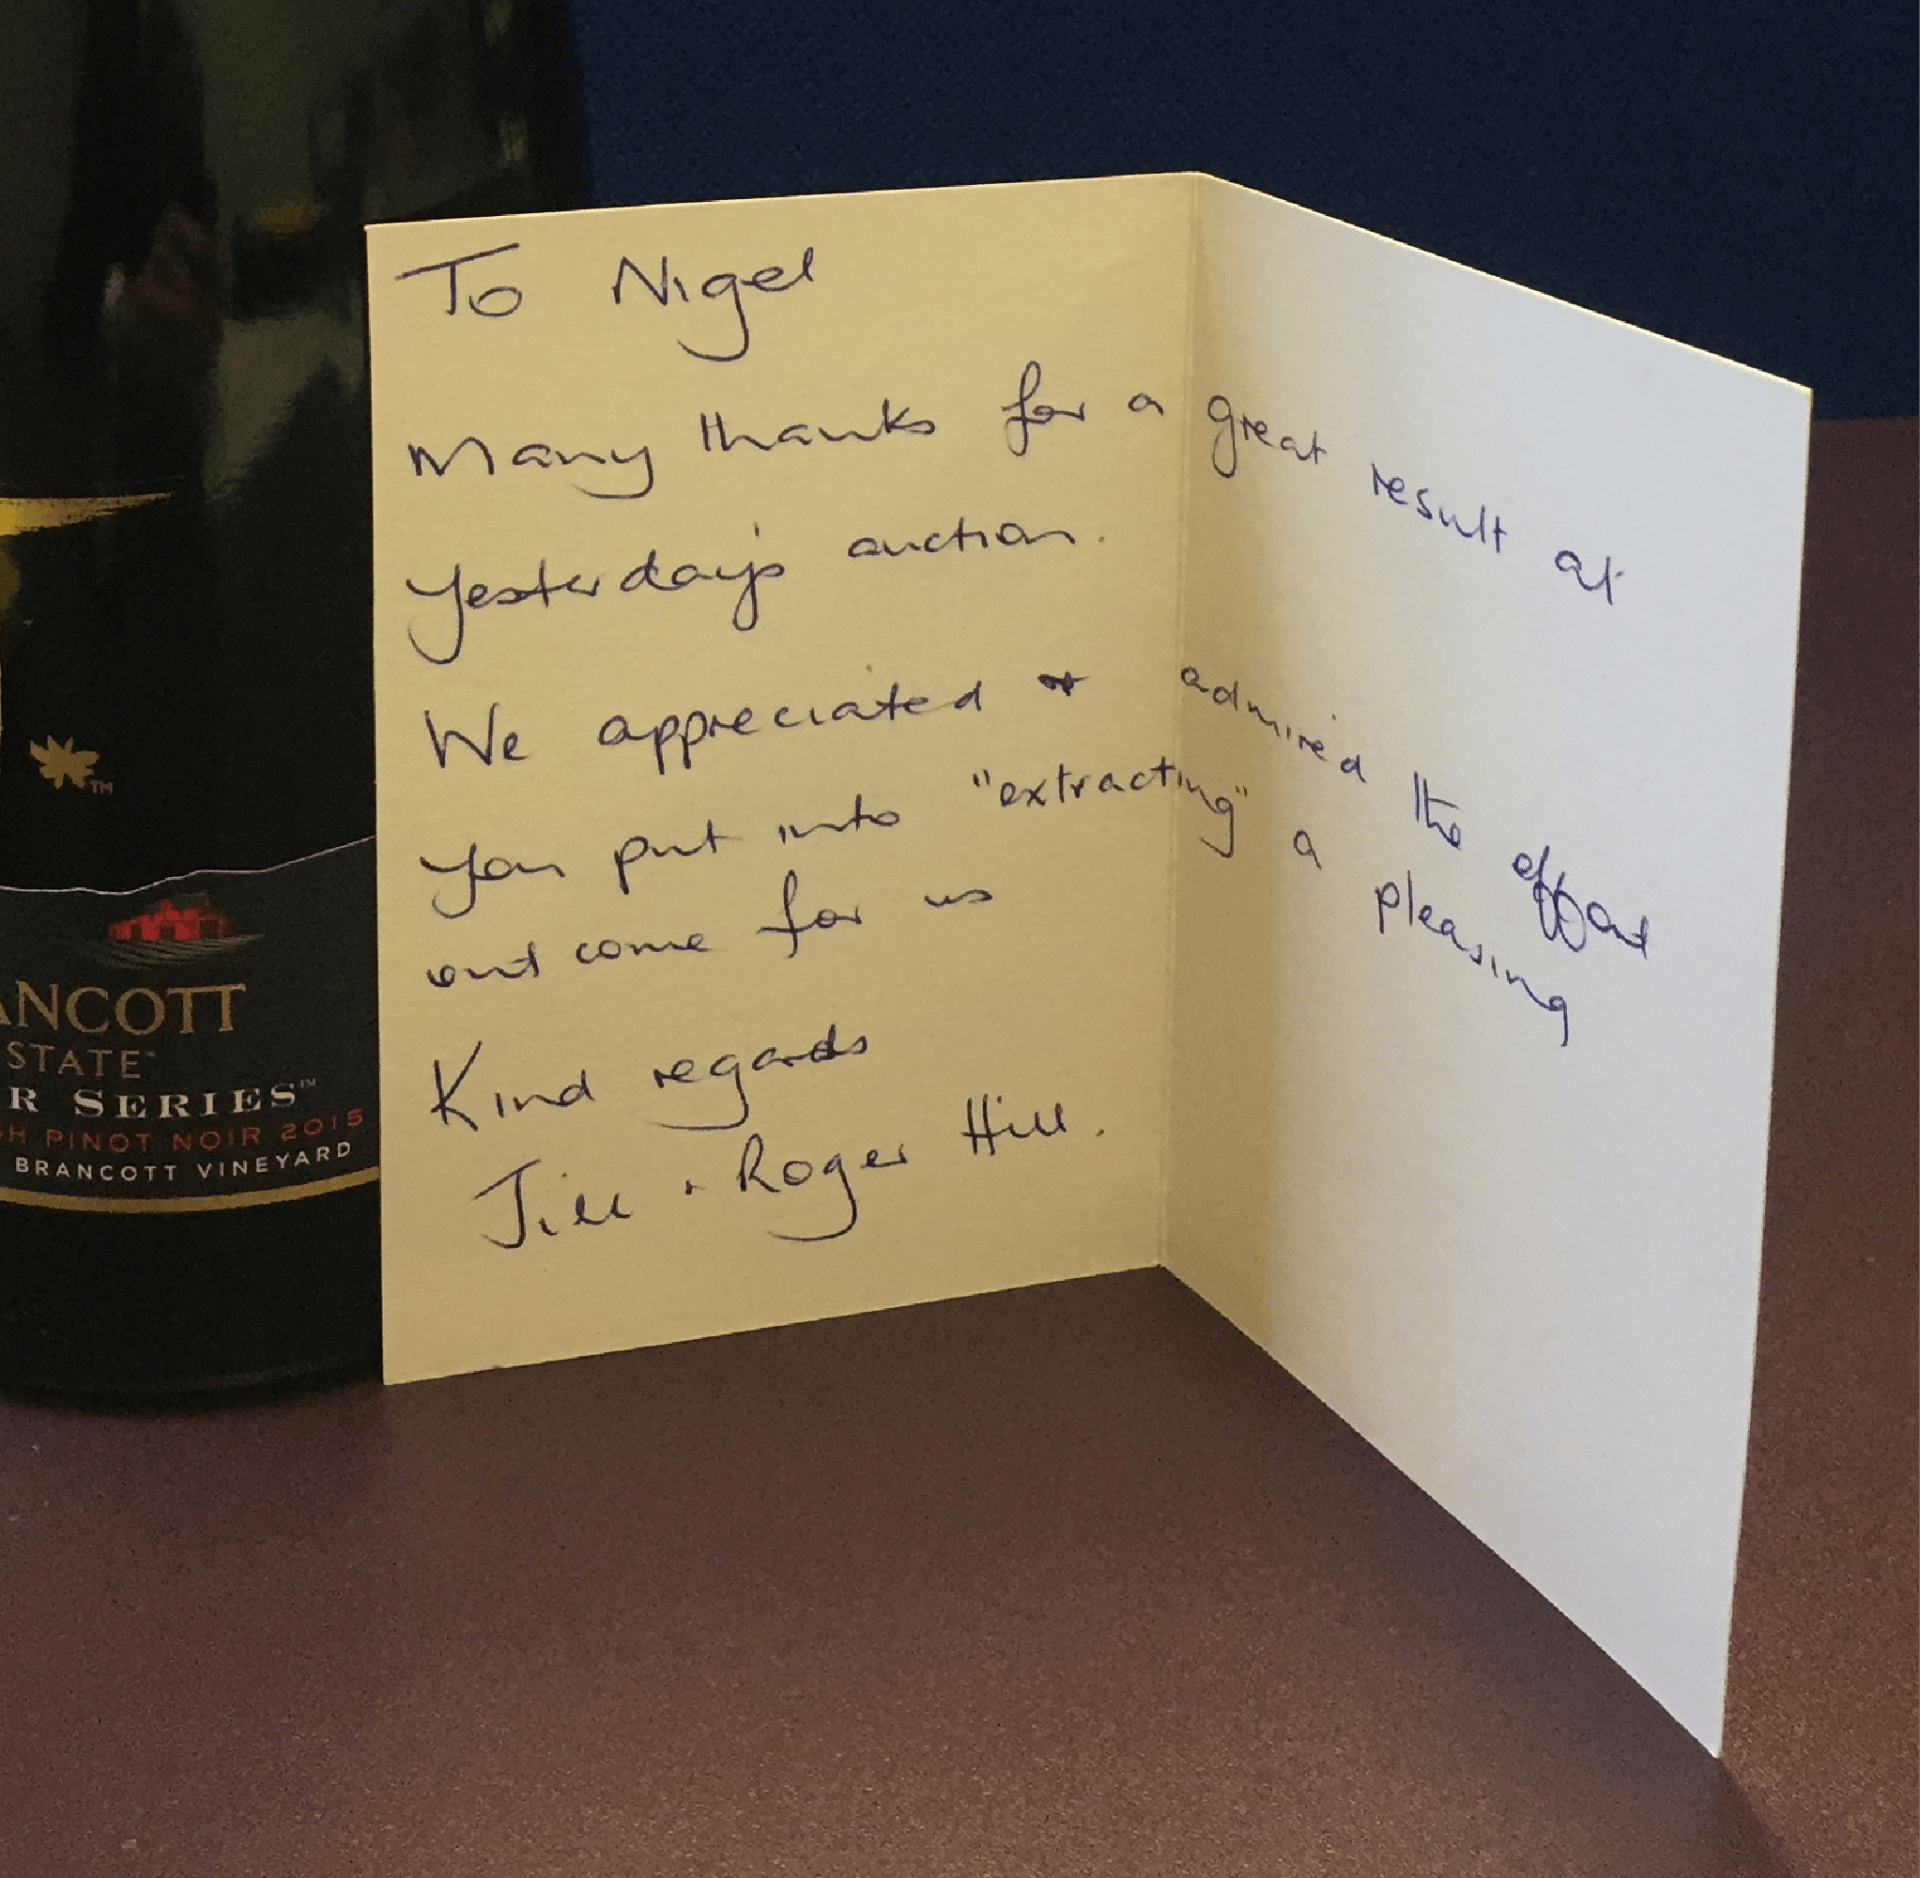 To Nigel
Many thanks for a great result at
yesterday's auction.
We appreciated + admired the effort
you put into "extracting" a pleasing
out come for us
Kind regards
Jill + Roger Hill.
TM
ANCOTT
STATE™
R SERIES™
H PINOT NOIR 2015
BRANCOTT VINEYARD